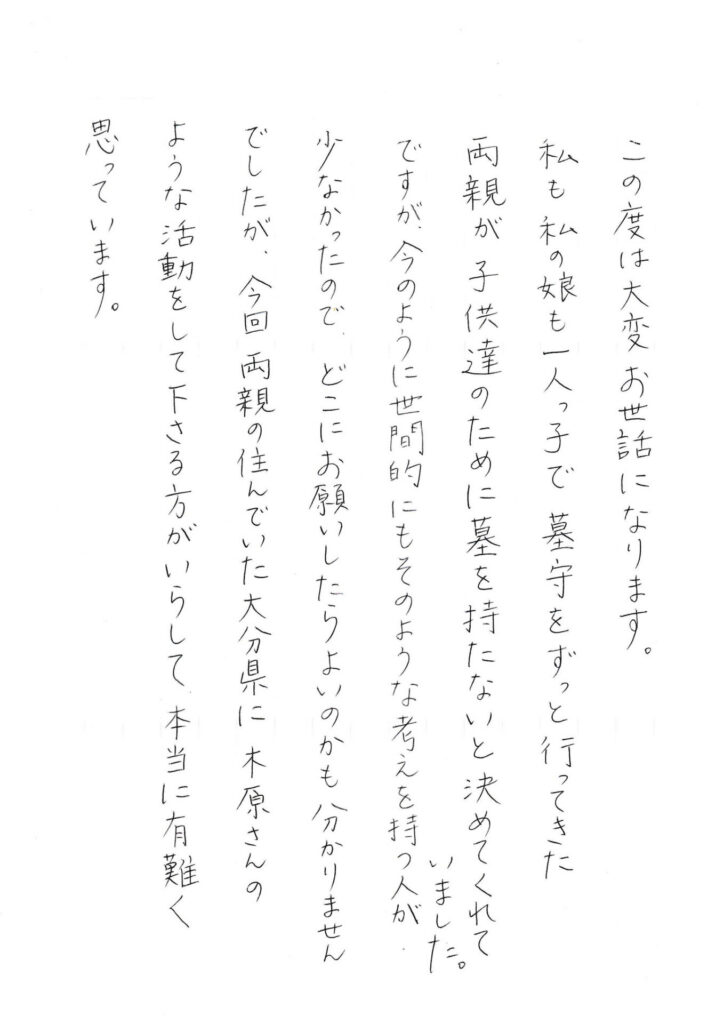 この度は大変お世話になります。
私も私の娘も一人っ子で墓守をずっと行ってきた
両親が子供達のために墓を持たないと決めてくれて
いました。
ですが、今のように世間的にもそのような考えを持つ人が
少なかったので、どこにお願いしたらよいのかも分かりません
でしたが、今回両親の住んでいた大分県に木原さんの
ような活動をして下さる方がいらして、本当に有難く
思っています。